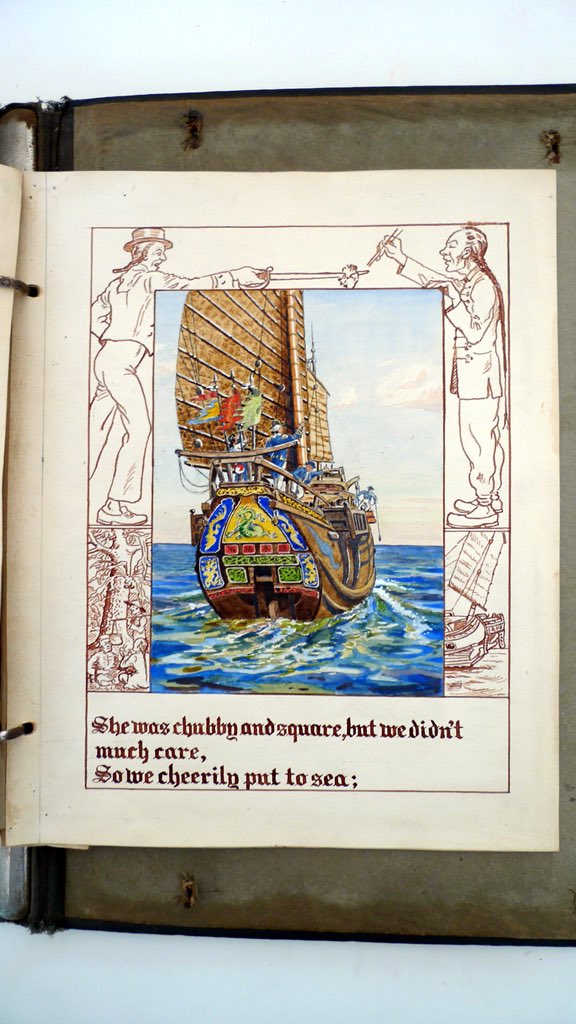 She was chubby and square, but we didn't
much care,
So we cheerily put to sea;